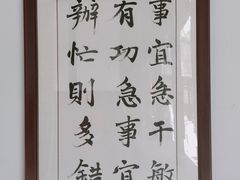 事宜急干敏
有功急事宜
辦忙則多錯